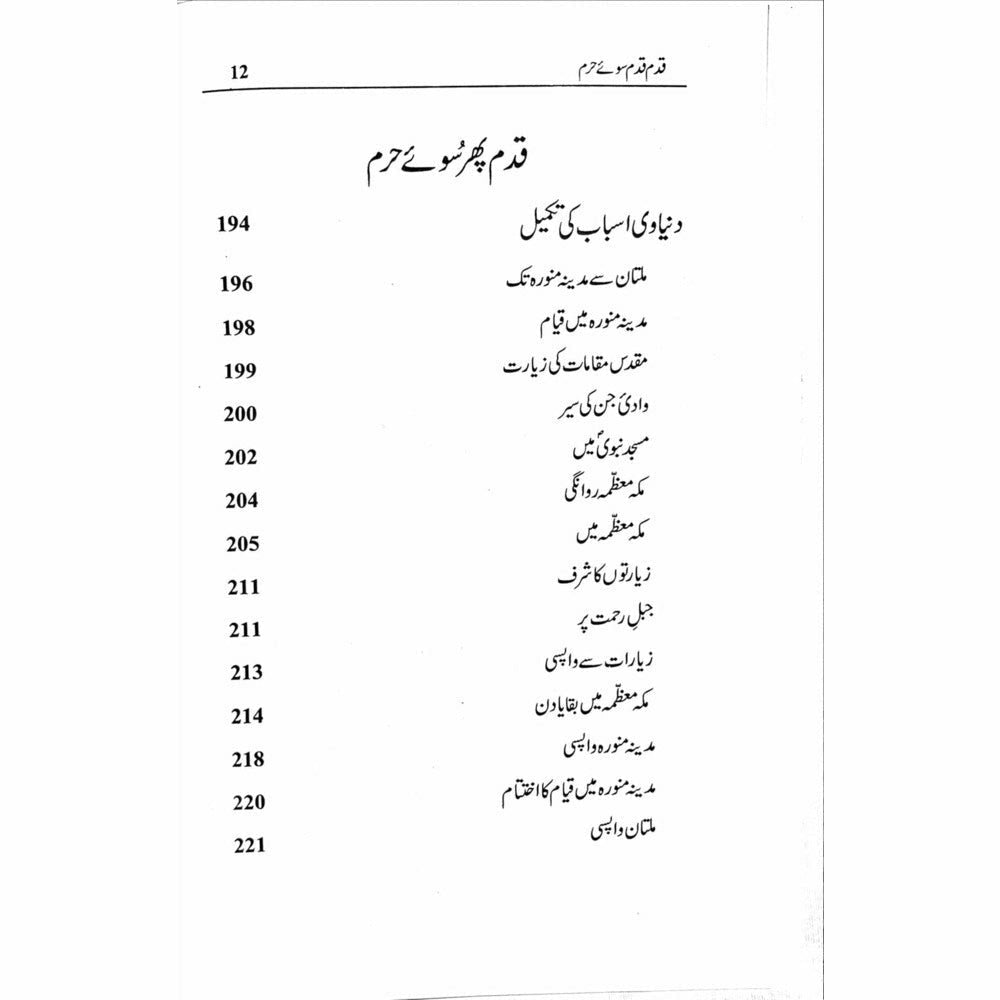 قدم قدم سوئے حرم 12
قدم پھر سُوئے حرم
دنیاوی اسباب کی تکمیل 194
ملتان سے مدینہ منورہ تک 196
مدینہ منورہ میں قیام 198
مقدس مقامات کی زیارت 199
وادیٔ جن کی سیر 200
مسجد نبویؐ میں 202
مکہ معظّمہ روانگی 204
مکہ معظّمہ میں 205
زیارتوں کا شرف 211
جبلِ رحمت پر 211
زیارات سے واپسی 213
مکہ معظّمہ میں بقایا دن 214
مدینہ منورہ واپسی 218
مدینہ منورہ میں قیام کا اختتام 220
ملتان واپسی 221